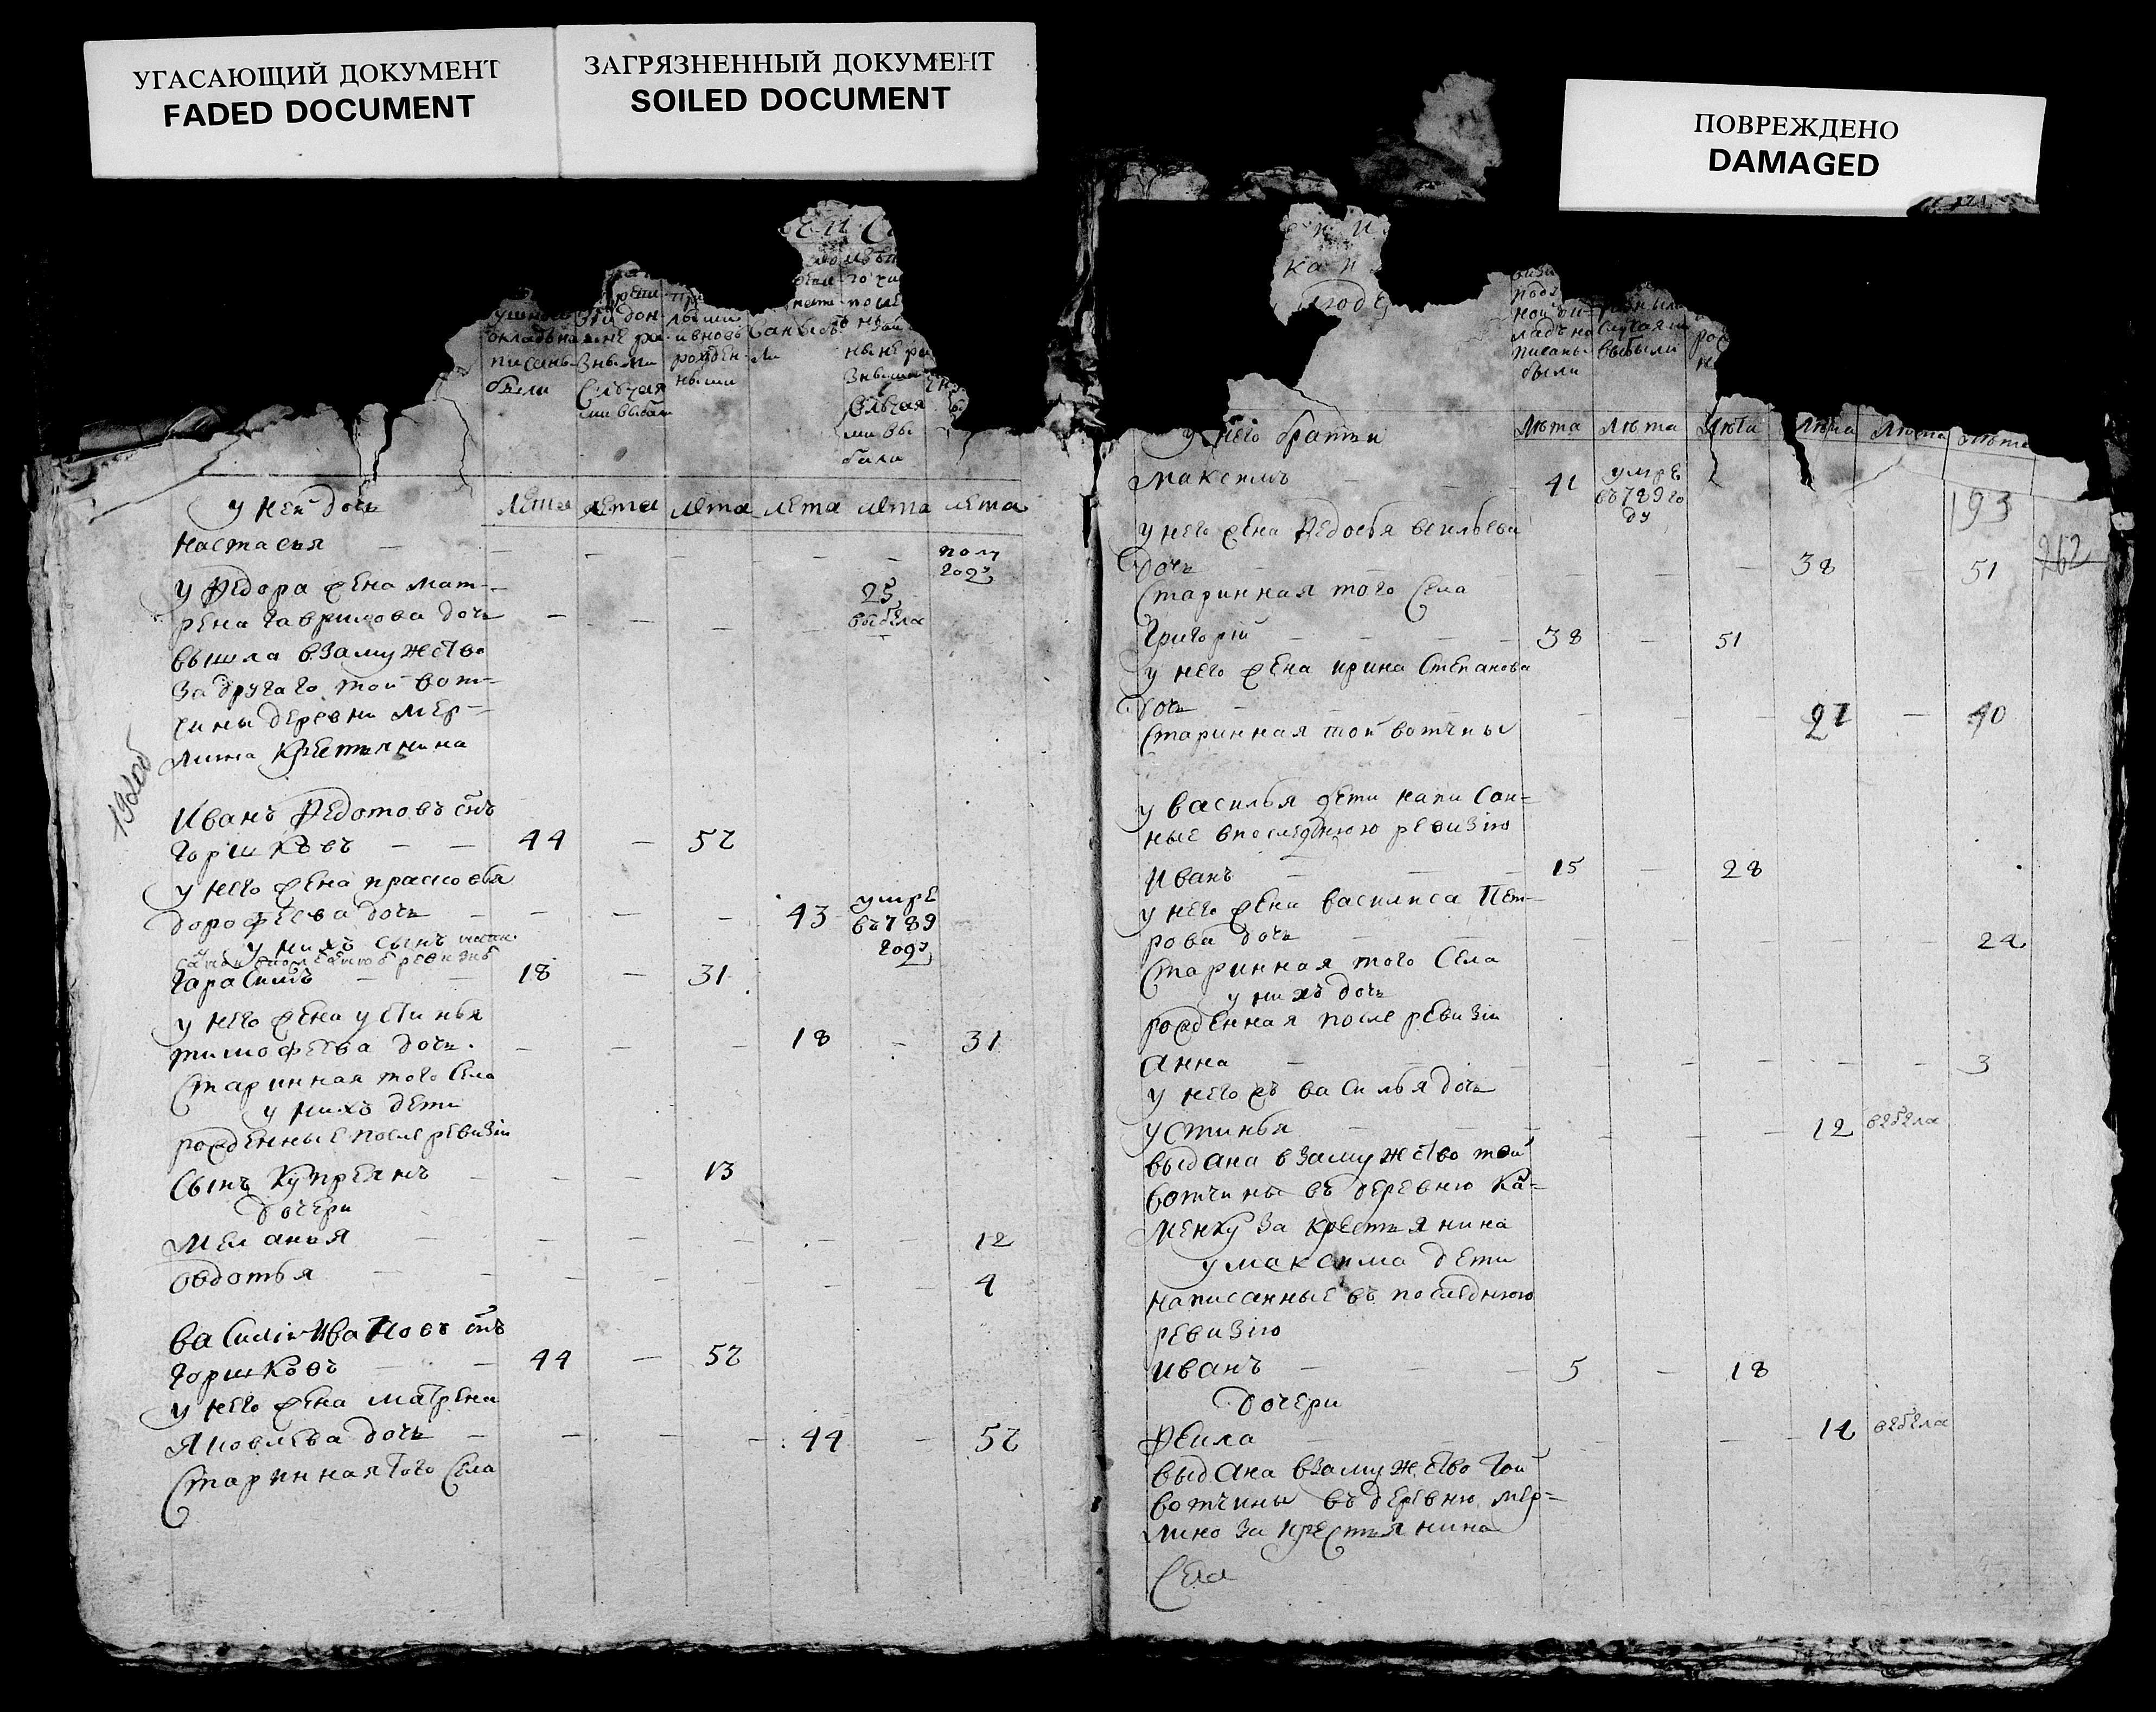 УГАСАЮЩИЙ ДОКУМЕНТ
FADED DOCUMENT
ЗАГРЯЗНЕННЫЙ ДОКУМЕНТ
SOILED DOCUMENT
ПОВРЕЖДЕНО
DAMAGED
писаны
были
рожден
ными
у ней дочь лета лета лета лета лета лета
Настасья — — — — — полу
году
у Федора жена мат- 25
рена Гаврилова дочь — — — — выбыла
вышла взамужство
за другаго той вот-
чины деревни Мер-
лина крестьянина
192об
Иванъ Федотовъ снъ
Горшковъ — — 44 — 57
у него жена Прасковья
Дорофеева дочь — — — — 43 умре
въ 789
году
у нихъ сынъ
Гарасимъ — — 18 — 31
у него жена Устинья
Тимофеева дочь — — — 18 — 31
Старинная того Села
у нихъ дети
рожденные после ревизiи
Сынъ Купреянъ — — — 13
Дочери
Меланья — — — — — — 12
Овдотья — — — — — — 4
Василiи Ивановъ снъ
Горшковъ — — 44 — 57
у него жена Матрена
Яковлева дочь — — — — 44 — 57
Старинная того Села
писаны выбыли
были
у него братьи лѣта лѣта лѣта лѣта лѣта лѣта
Максимъ — — 41 умре
въ 789 го
ду
193
262
у него жена Федосья Васильева
дочь — — — — 38 — 51
Старинная того Села
Григорiй — — — 38 — 51
у него жена Ирина Степанова
дочь — — — — 27 — 40
Старинная той вотчины
у Василья дети написан=
ные впоследнюю ревизiю
Иванъ — — — 15 — 28
у него жена Василиса Пет-
рова дочь — — — — — — 24
Старинная того Села
у нихъ дочь
рожденная после ревизiи
Анна — — — — — — 3
у него жъ Василья дочь
Устинья — — — — 12 выбыла
выдана взамужство той
вотчины въ деревню Ка=
менку за крестьянина
у Максима дети
написанные въ последнюю
ревизiю
Иванъ — — 5 — 18
Дочери
Фекла — — — — 14 выбыла
выдана взамужство той
вотчины въ деревню Мер=
лино за крестьянина
Села